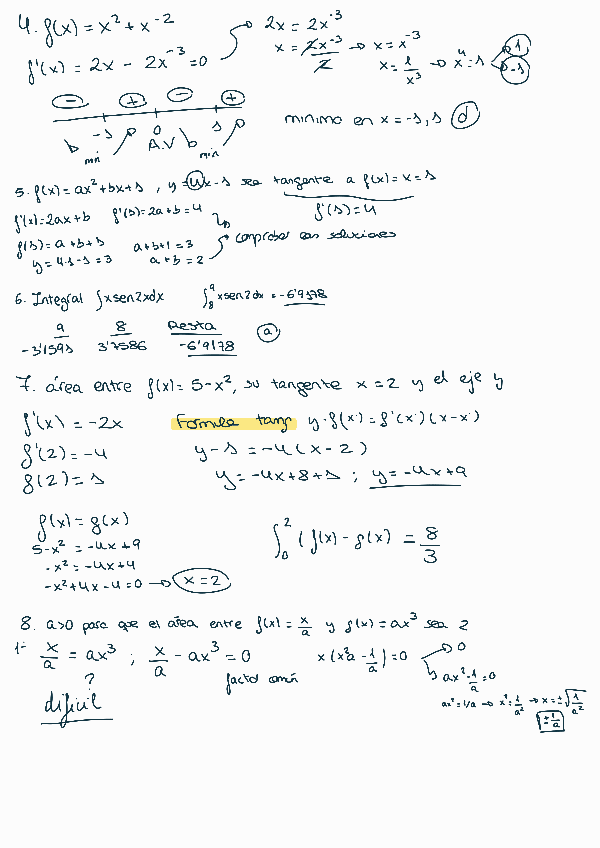 4. f(x) = x² + x⁻²
f'(x) = 2x - 2x⁻³ = 0
2x = 2x⁻³
x = 2x⁻³/2 → x = x⁻³
x = 1/x³ → x⁴ = 1 1 -1
- + - +
-1 0 1
mín A.V mín
mínimo en x = -1, 1 d
5. f(x) = ax² + bx + 1, y = 4x - 1 sea tangente a f(x) = x = 1
f'(x) = 2ax + b f'(1) = 2a + b = 4 f'(1) = 4
f(1) = a + b + 1 a + b + 1 = 3 comprobar con soluciones
y = 4·1 - 1 = 3 a + b = 2
6. Integral ∫xsen2xdx ∫₈⁹ xsen2dx = -6'9178
9 8 Resta
-3'1593 3'7586 -6'9178 a
7. área entre f(x) = 5 - x², su tangente x = 2 y el eje y
f'(x) = -2x Formula tang y·f(x·) = f'(x·)(x-x·)
f'(2) = -4 y - 1 = -4(x - 2)
f(2) = 1 y = -4x + 8 + 1; y = -4x + 9
f(x) = g(x)
5 - x² = -4x + 9
-x² = -4x + 4
-x² + 4x - 4 = 0 → x = 2
∫₀² (f(x) - g(x) = 8/3
8. a>0 para que el área entre f(x) = x/a y g(x) = ax³ sea 2
1º x/a = ax³; x/a - ax³ = 0 x(x²a - 1/a) = 0 0
? factor común ax² - 1/a = 0
difícil
ax² = 1/a → x² = 1/a² → x = ±√1/a²
±1/a